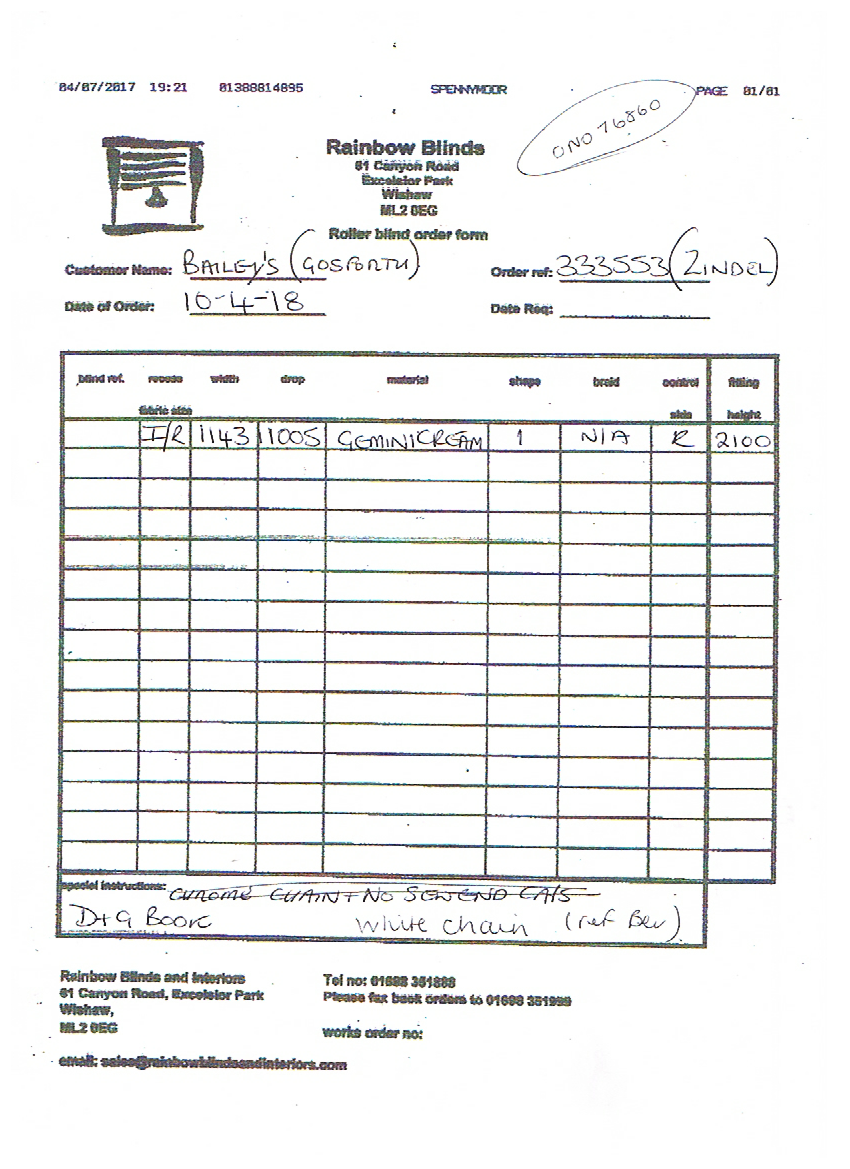 04/07/2017 19:21 01388814895 SPENNYMOOR PAGE 01/01
ONO 76860
Rainbow Blinds
61 Canyon Road
Excelsior Park
Wishaw
ML2 0EG
Roller blind order form
Customer Name: BAILEY'S (GOSFORTH) Order ref: 333553 (ZINDEL)
Date of Order: 10-4-18 Date Req:
blind ref. recess width drop material shape braid control fitting
fabric size side height
I/R 1143 1005 GEMINI CREAM 1 N/A R 2100
special instructions: CHROME CHAIN + NO SEW END CAPS
D+G BOOK White chain (ref Bev)
Rainbow Blinds and Interiors Tel no: 01698 351888
61 Canyon Road, Excelsior Park Please fax back orders to 01698 351999
Wishaw,
ML2 0EG works order no:
email: sales@rainbowblindsandinteriors.com